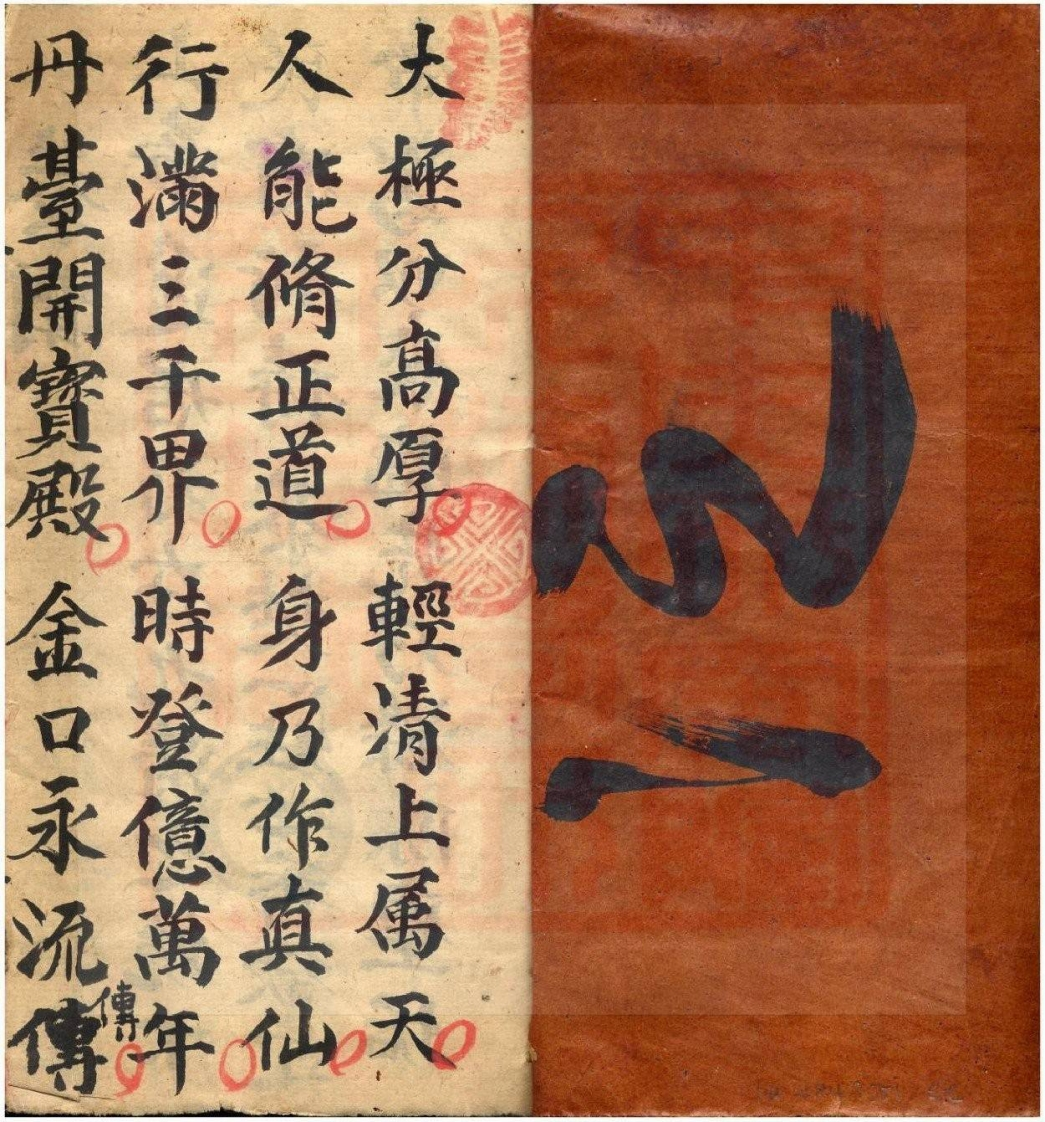 大極分高厚 輕清上属天
人能脩正道 身乃作真仙
行滿三千界 時登億萬年
丹臺開寶殿 金口永流傳
傳